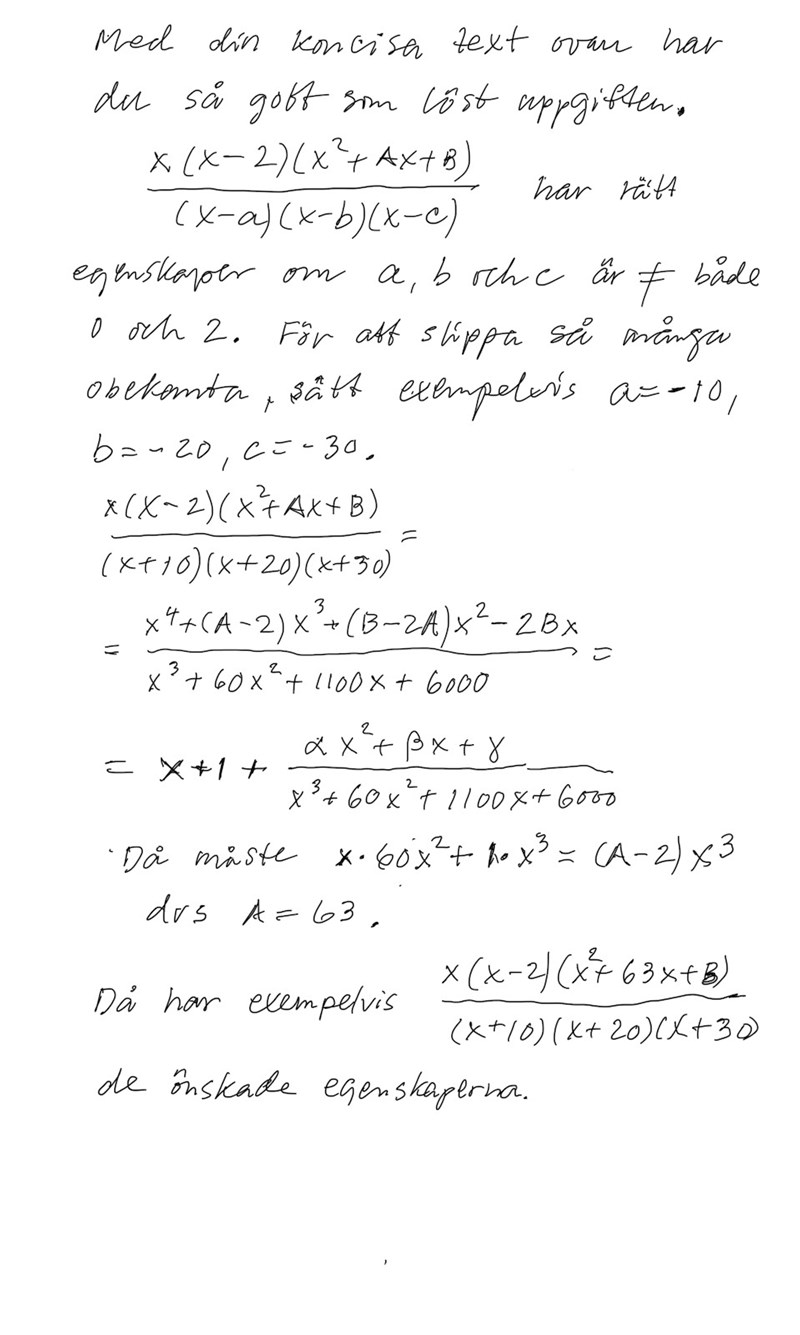 Med din koncisa text ovan har
du så gott som löst uppgiften.
x(x-2)(x²+Ax+B)/(x-a)(x-b)(x-c) har rätt
egenskaper om a, b och c är ≠ både
0 och 2. För att slippa så många
obekanta, sätt exempelvis a=-10,
b=-20, c=-30.
x(x-2)(x²+Ax+B)/(x+10)(x+20)(x+30) =
= x⁴+(A-2)x³+(B-2A)x²-2Bx/x³+60x²+1100x+6000 =
= x+1+ αx²+βx+γ/x³+60x²+1100x+6000
Då måste x·60x²+1·x³=(A-2)x³
dvs A=63.
Då har exempelvis x(x-2)(x²+63x+B)/(x+10)(x+20)(x+30
de önskade egenskaperna.